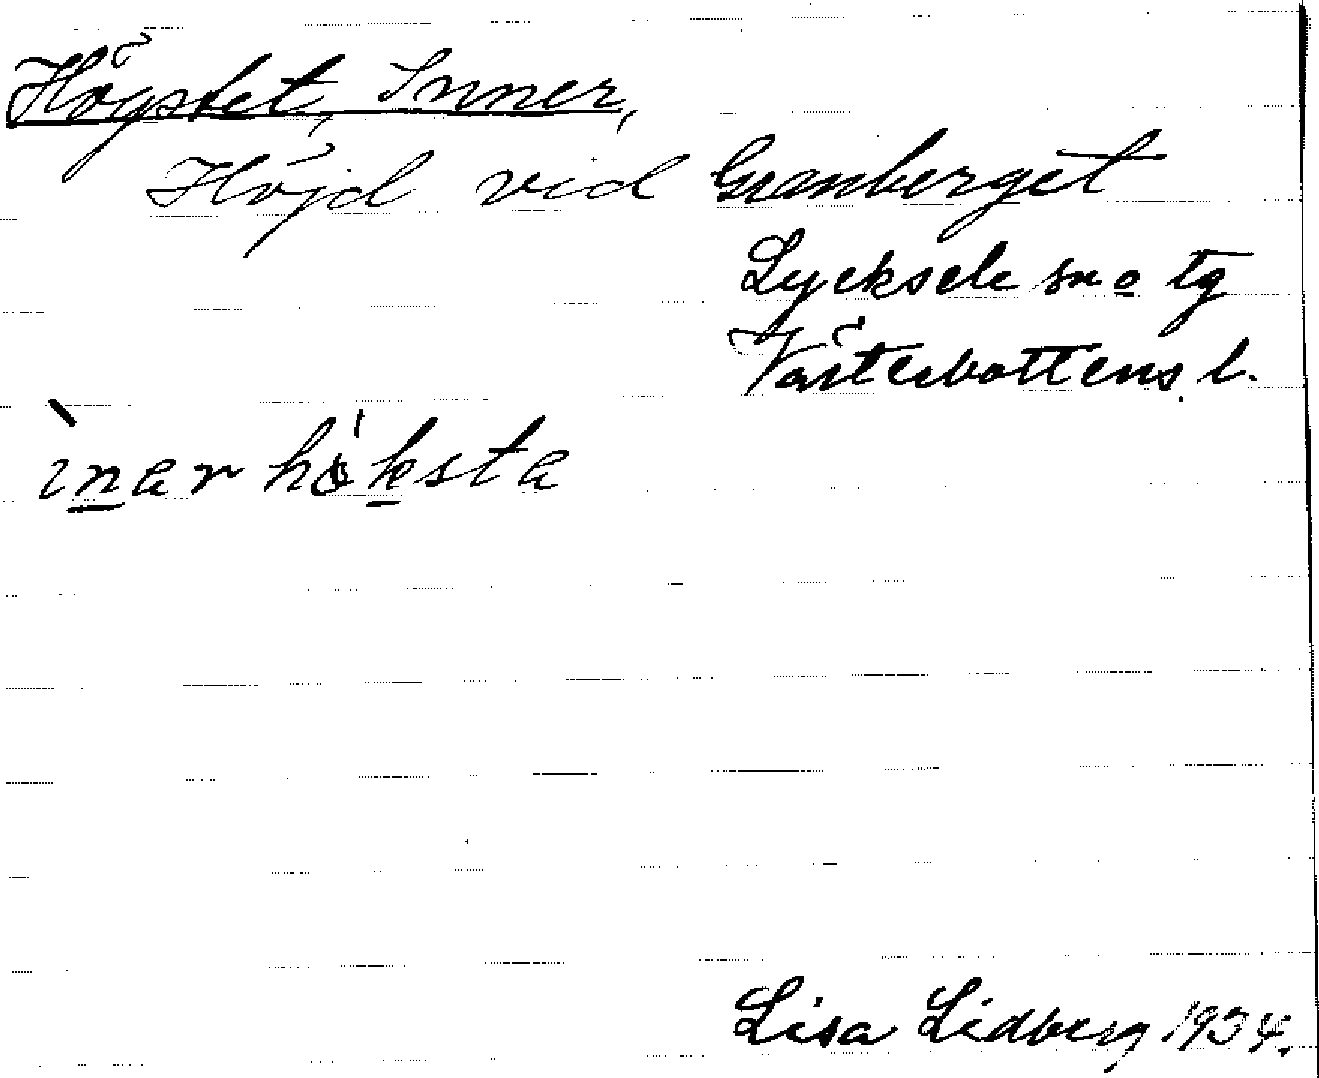 Högstet, Inner,
Höjd vid Granberget
Lycksele sn o tg
Västerbottens l.
ìnar hö'ksta
Lisa Lidberg 1934.